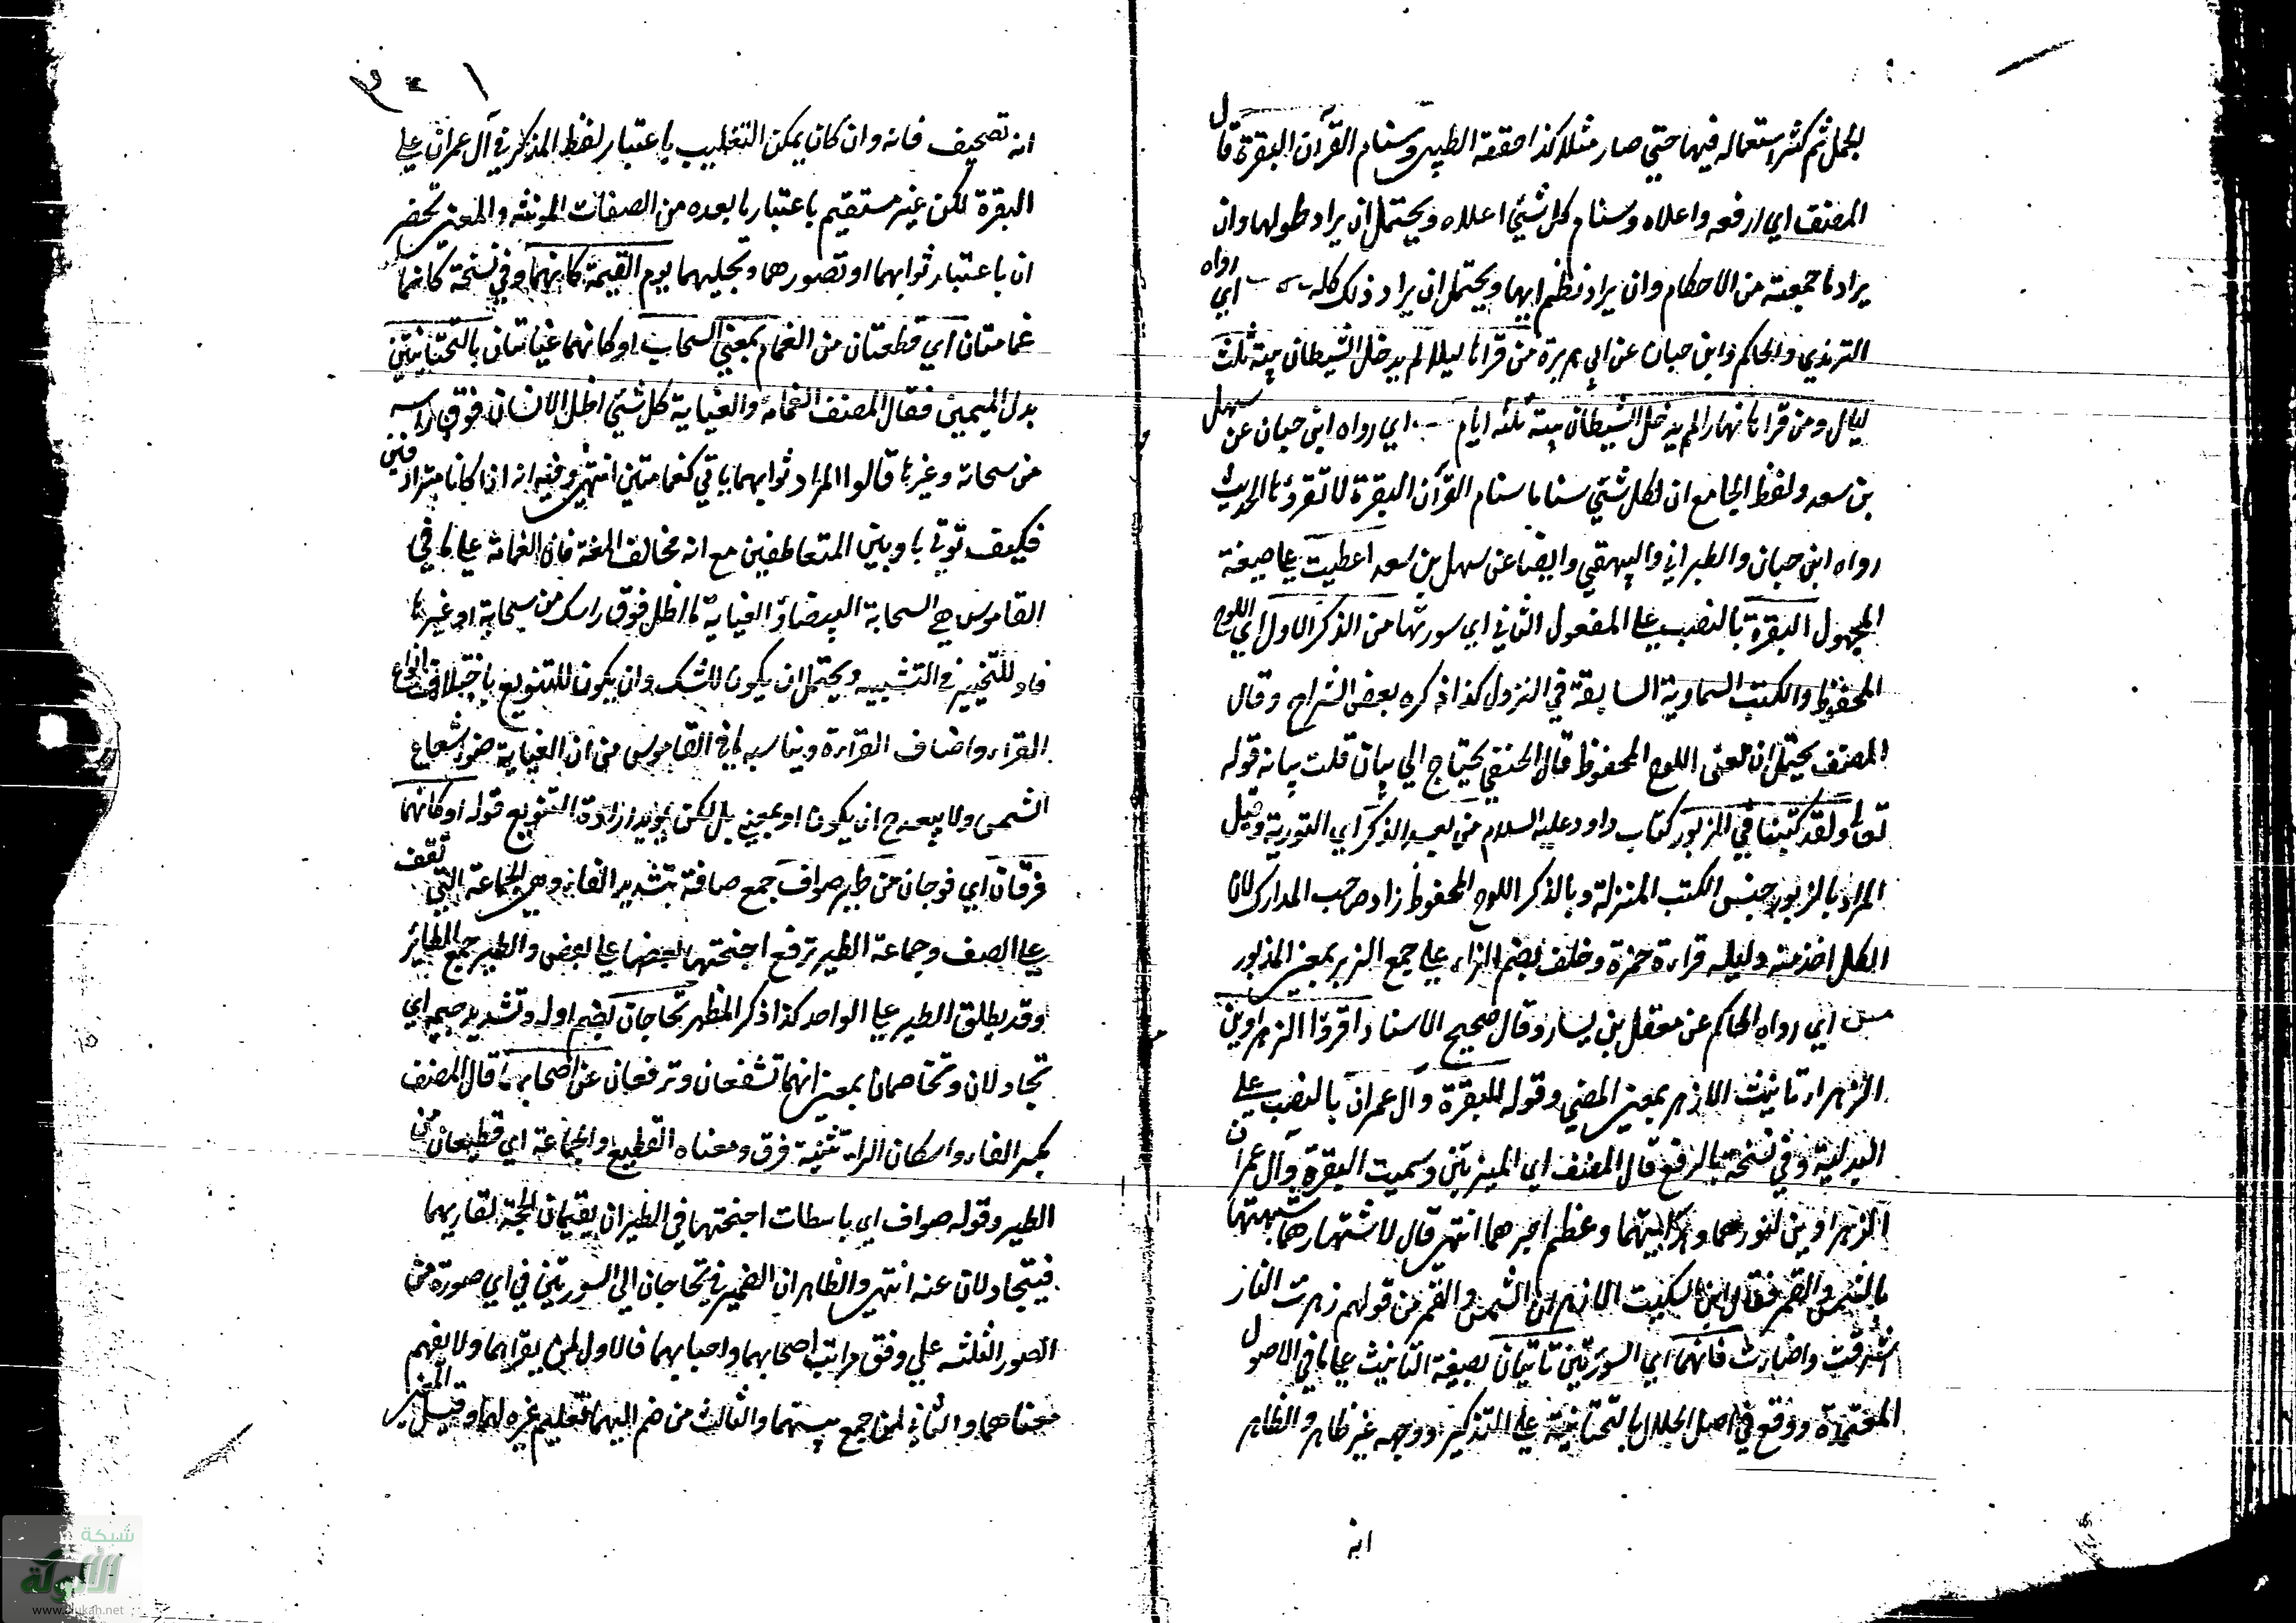 للجمل ثم كثر استعماله فيها حتي صار مثلا كذا حققه الطيبي وسنام القرآن البقرة قال
المصنف اي ارفعه واعلاه وسنام كل شيء اعلاه ويحتمل ان يراد طولها وان
يراد ما جمعته من الاحكام وان يراد نظم ايها ويحتمل ان يراد ذلك كله اي رواه
الترمذي والحاكم وابن حبان عن ابي هريرة من قرأها ليلا لم يدخل الشيطان بيته ثلث
ليال ومن قرأها نهارا لم يدخل الشيطان بيته ثلثه ايام اي رواه ابن حبان عن سهل
بن سعد ولفظ الجامع ان لكل شيء سناما سنام القرآن البقرة الحديث
رواه ابن حبان والطبراني والبيهقي وايضا عن سهل بن سعد اعطيت علي صيغة
المجهول البقرة بالنصب علي المفعول الثاني اي سورتها من الذكر الاول اي اللوح
المحفوظ والكتب السماوية السابقة في النزول كذا ذكره بعض الشراح وقال
المصنف يحتمل ان يعني اللوح المحفوظ قال الحنفي يحتاج الي بيان قلت بيانه قوله
تعالي ولقد كتبنا في الزبور كتاب داود عليه السلام من بعد الذكر اي التورية وقيل
المراد بالزبور جنس الكتب المنزلة وبالذكر اللوح المحفوظ زاد صاحب المدارك لان
الكل اخذ منه دليله قراءة حمزة وخلف بضم الزاء علي جمع الزبر بمعني المزبور
مس اي رواه الحاكم عن معقل بن يسار وقال صحيح الاسناد اقرؤا الزهراوين
الزهراء تانيث الازهر بمعني المضي وقوله البقرة وآل عمران بالنصب علي
البدلية وفي نسخة بالرفع قال المصنف اي المنيرتين وسميت البقرة وآل عمران
الزهراوين لنورهما وهدايتهما وعظم اجرهما انتهي قال لاشتهارهما شبهتها
بالشمس والقمر فقال ابن السكيت الازهران الشمس والقمر من قولهم زهرت النار
اشرقت واضاءت فانهما اي السورتين تاتيان بصيغة التانيث علي ما في الاصول
المعتمدة ووقع في اصل الجلال بالتحتانية علي التذكير ووجهه غير ظاهر والظاهر
انه
انه تصحيف فانه وان كان يمكن التغليب باعتبار لفظ المذكر في آل عمران علي
البقرة لكن غير مستقيم باعتبار ما بعده من الصفات المونثه والمعني تحضر
ان باعتبار ثوابهما او تصورهما وتجليهما يوم القيمة كانهما وفي نسخة كانما
غمامتان اي قطعتان من الغمام بمعني السحاب او كانهما غيايتان بالتحتانيتين
بدل الميمين فقال المصنف الغمامة والغياية كل شيء اظل الانسان فوق راسه
من سحابة وغيرها قالوا المراد ثوابهما ياتي كغمامتين انتهي وفيه انه اذا كانا مترادفين
فكيف توتي باو بين المتعاطفين مع انه مخالف اللغة فان الغمامة علي ما في
القاموس هي السحابة البيضاء والغياية ما اظل فوق راسك من سحابة او غيرها
فاو للتخيير في التشبيه ويحتمل ان يكون للشك وان يكون للتنويع باختلاف انواع
القراء واضاف القراءة ويناسبه ما في القاموس من ان الغياية ضوء شعاع
الشمس ولا يبعد ان يكون او بمعني بل لكن يؤيد ارادة التنويع قوله او كانهما
فرقان اي فوجان من طير صواف جمع صافة بتشديد الفاء وهي الجماعة التي تقف
علي الصف وجماعة الطير ترفع اجنحتها بعضها علي بعض والطير جمع الطائر
وقد يطلق الطير علي الواحد كذا ذكر المظهر تحاجان بضم اوله وتشديد جيم اي
تجادلان وتخاصمان بمعني انهما تشفعان وترفعان عن اصحابهما قال المصنف
بكسر الفاء واسكان الراء تثنية فرق ومعناه القطيع والجماعة اي قطيعان من
الطير وقوله صواف اي باسطات اجنحتها في الطيران يقيمان الحجة لقاريهما
فيتجادلان عنه انتهي والظاهر ان الضمير في تحاجان الي السورتين في اي صورة من
الصور الثلثه علي وفق مراتب اصحابهما واحبابهما فالاول لمن يقرأهما ولا يفهم
معناهما والثاني لمن جمع بينهما والثالث من ضم اليهما تعليم غيره لهما وقيل